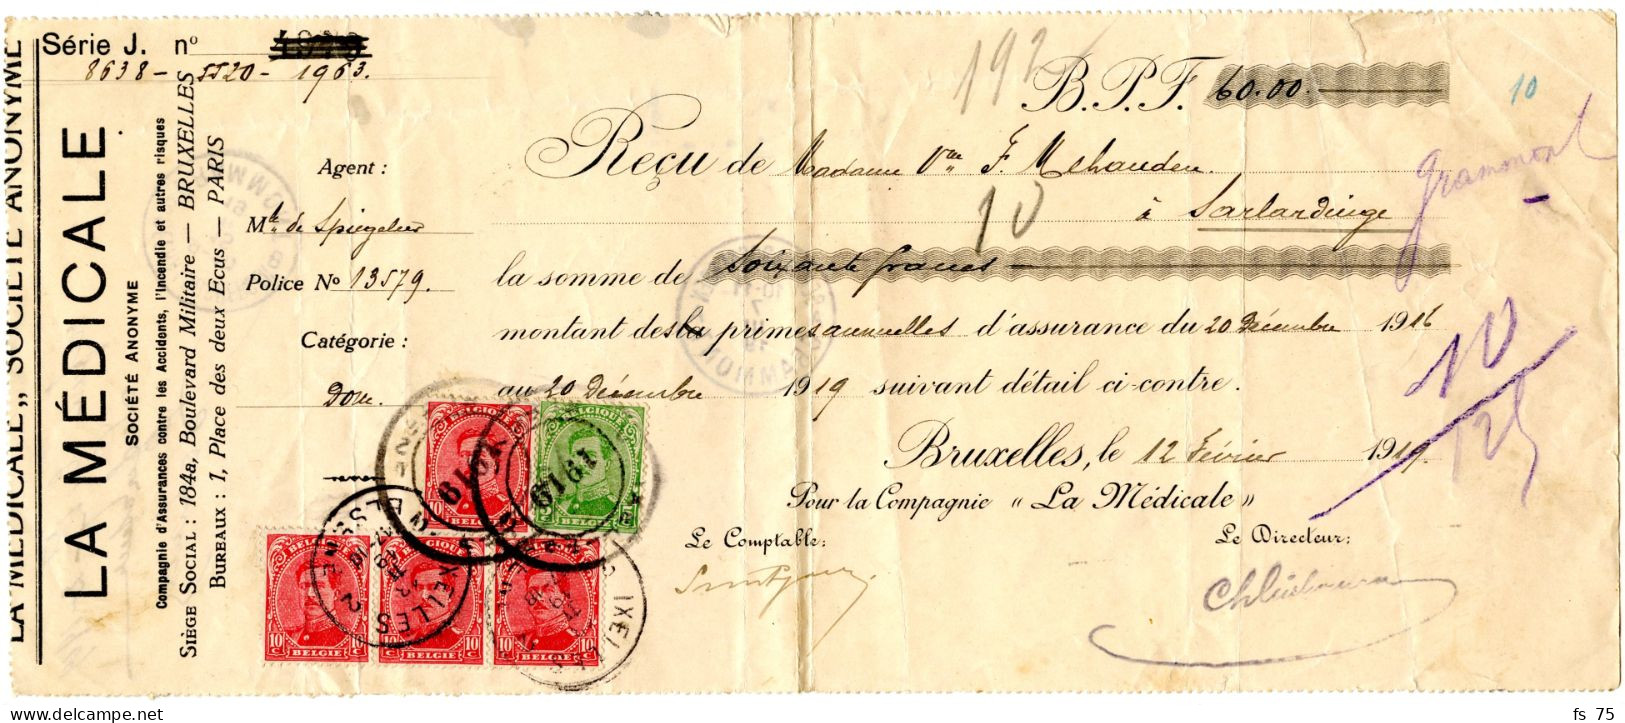 LA MÉDICALE,, SOCIÉTÉ ANONYME
LA MÉDICALE
SOCIÉTÉ ANONYME
Compagnie d'Assurances contre les Accidents, l'Incendie et autres risques
SIÈGE SOCIAL : 184a, Boulevard Militaire — BRUXELLES
BUREAUX : 1, Place des deux Écus — PARIS
Série J. n°
8638 - 5520 - 1963.
Agent :
Police N° 13579.
Catégorie :
Dom.
192
B.P.F. 60.00.
10
Reçu de Madame Vve F.
à Sarlardinge
Grammont
10
la somme de Soixante francs
montant des primes annuelles d'assurance du 20 Décembre 1916
au 20 Décembre 1919 suivant détail ci-contre.
10
125
Bruxelles, le 12 Février 1919.
Pour la Compagnie “La Médicale”
Le Comptable:
Le Directeur:
BELGIQUE
10
BELGIE
BELGIQUE
1919
1919
BELGIQUE
10 10
BELGIE
BELGIQUE
10 10
BELGIE
BELGIQUE
10 10
BELGIE
IXELLES
ELSENE
IXELLES
fs 75